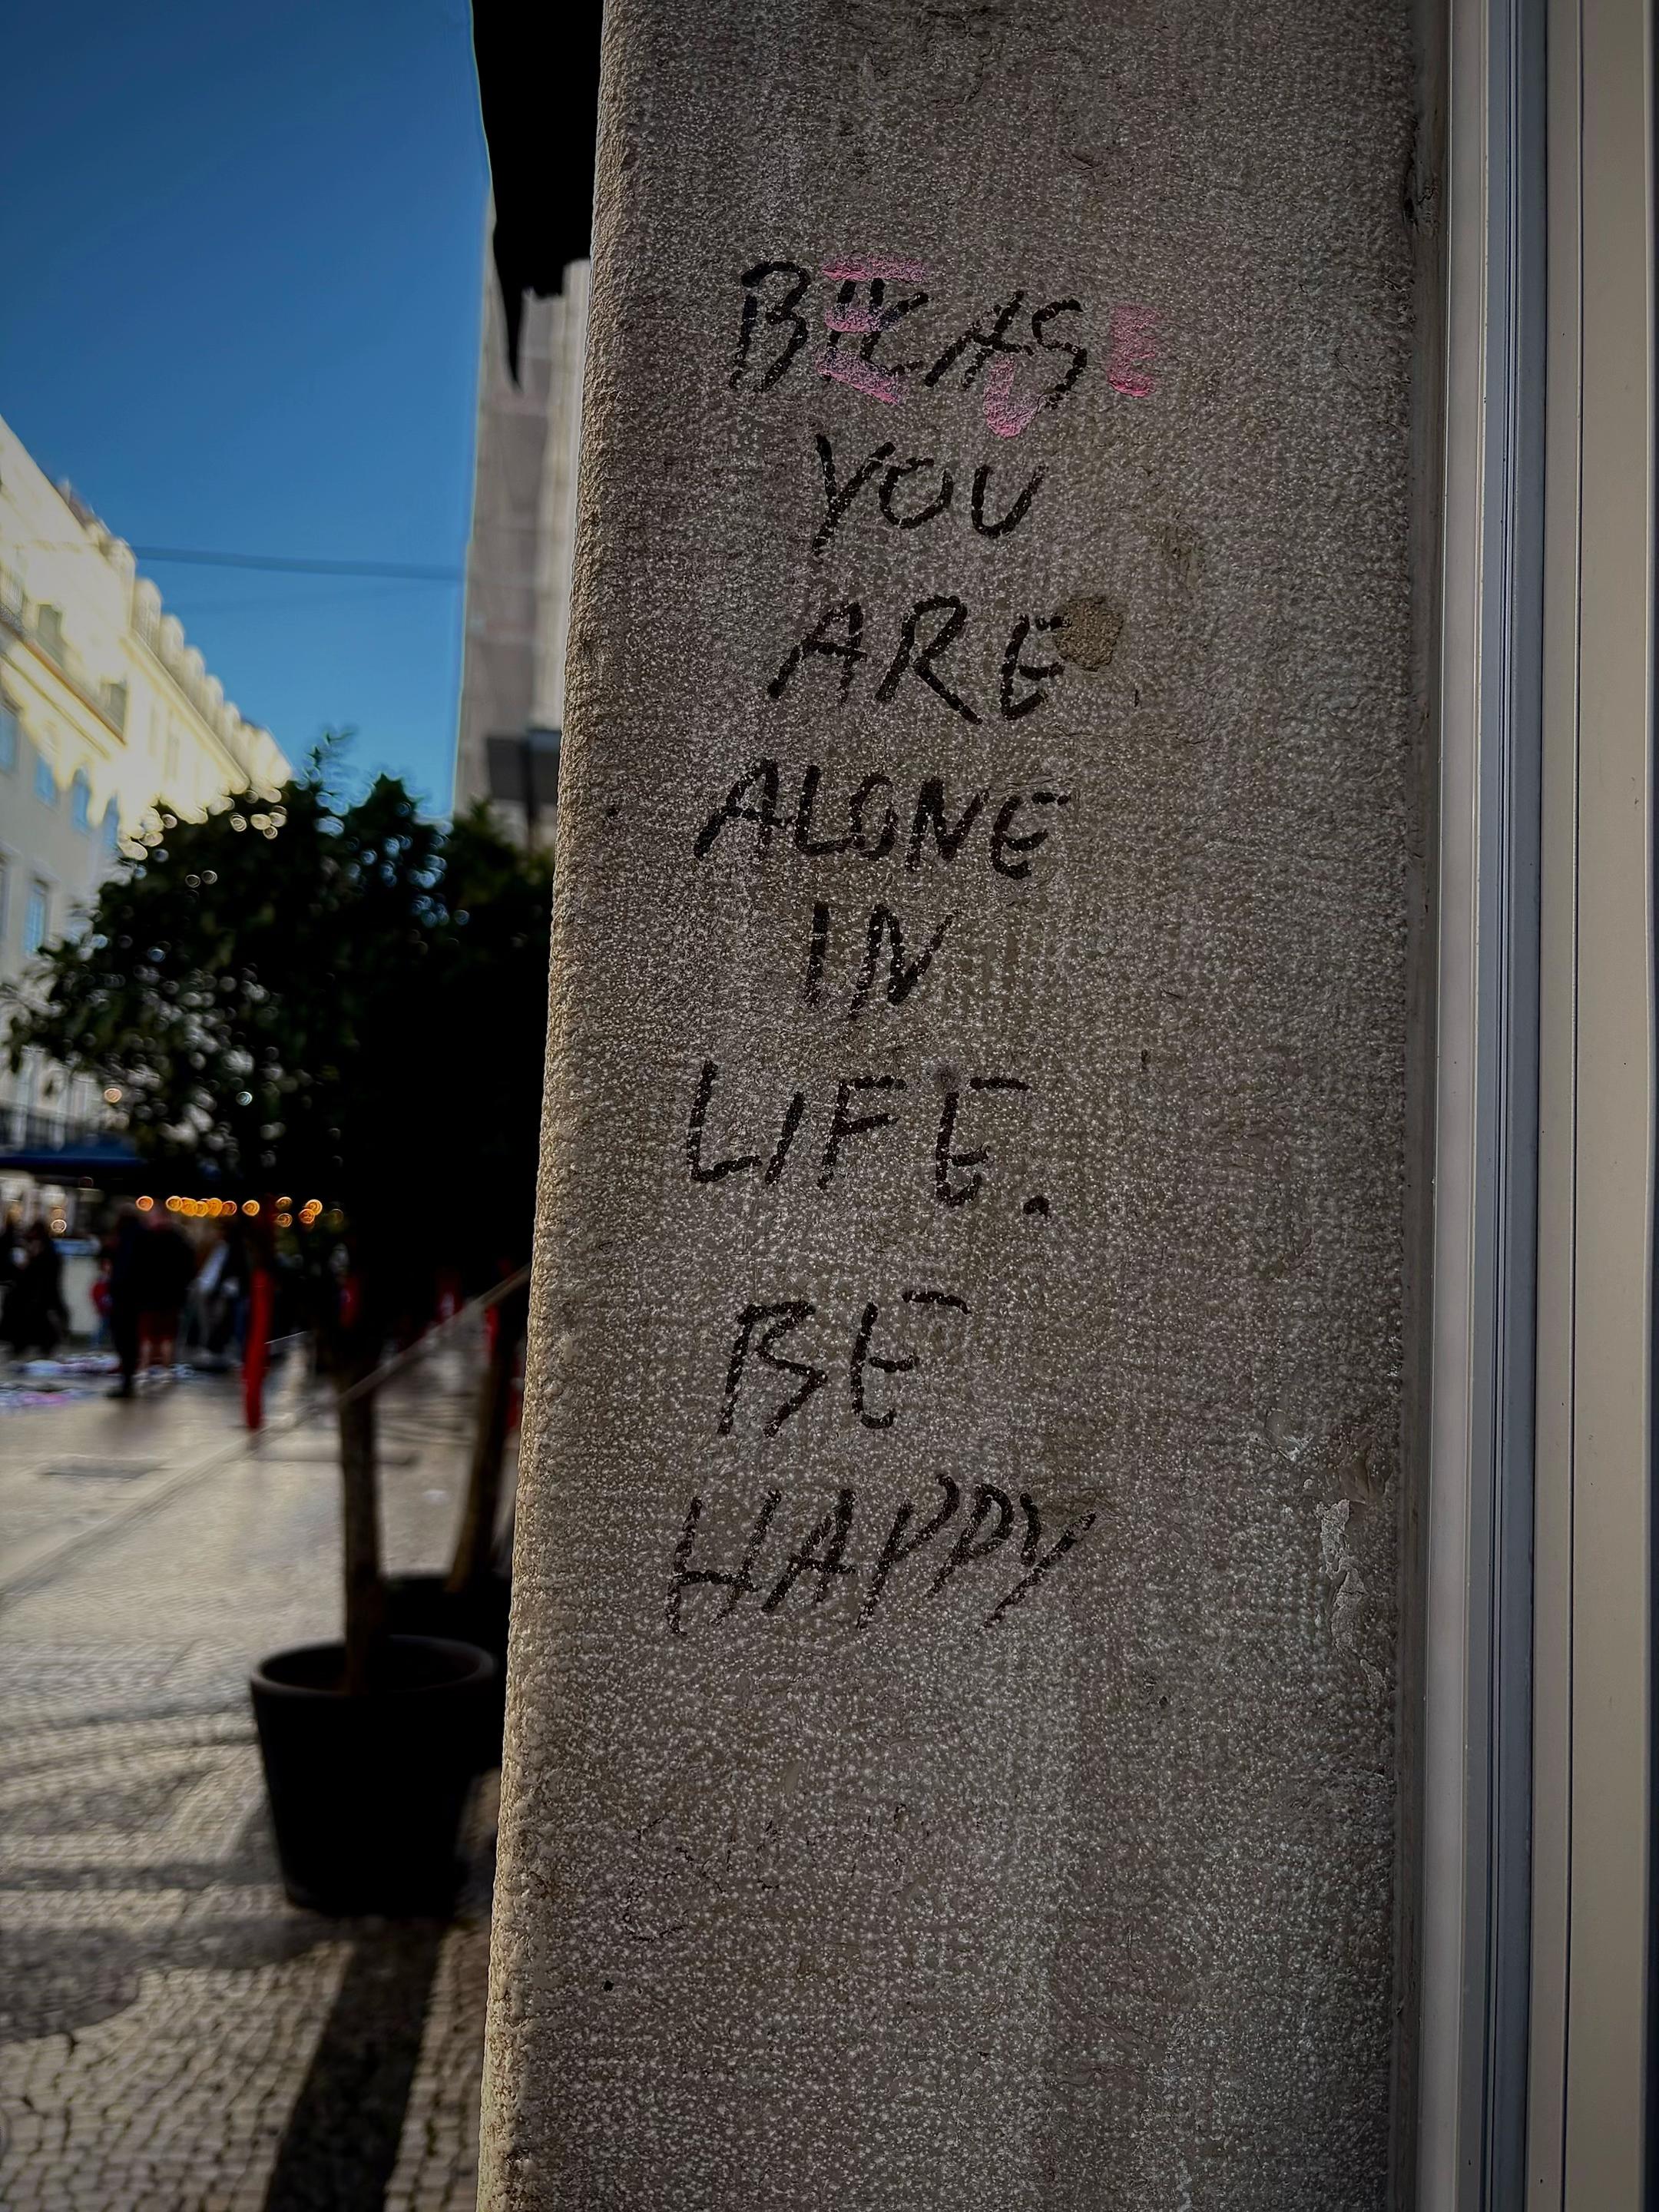 BECAUSE
YOU
ARE
ALONE
IN
LIFE.
BE
HAPPY